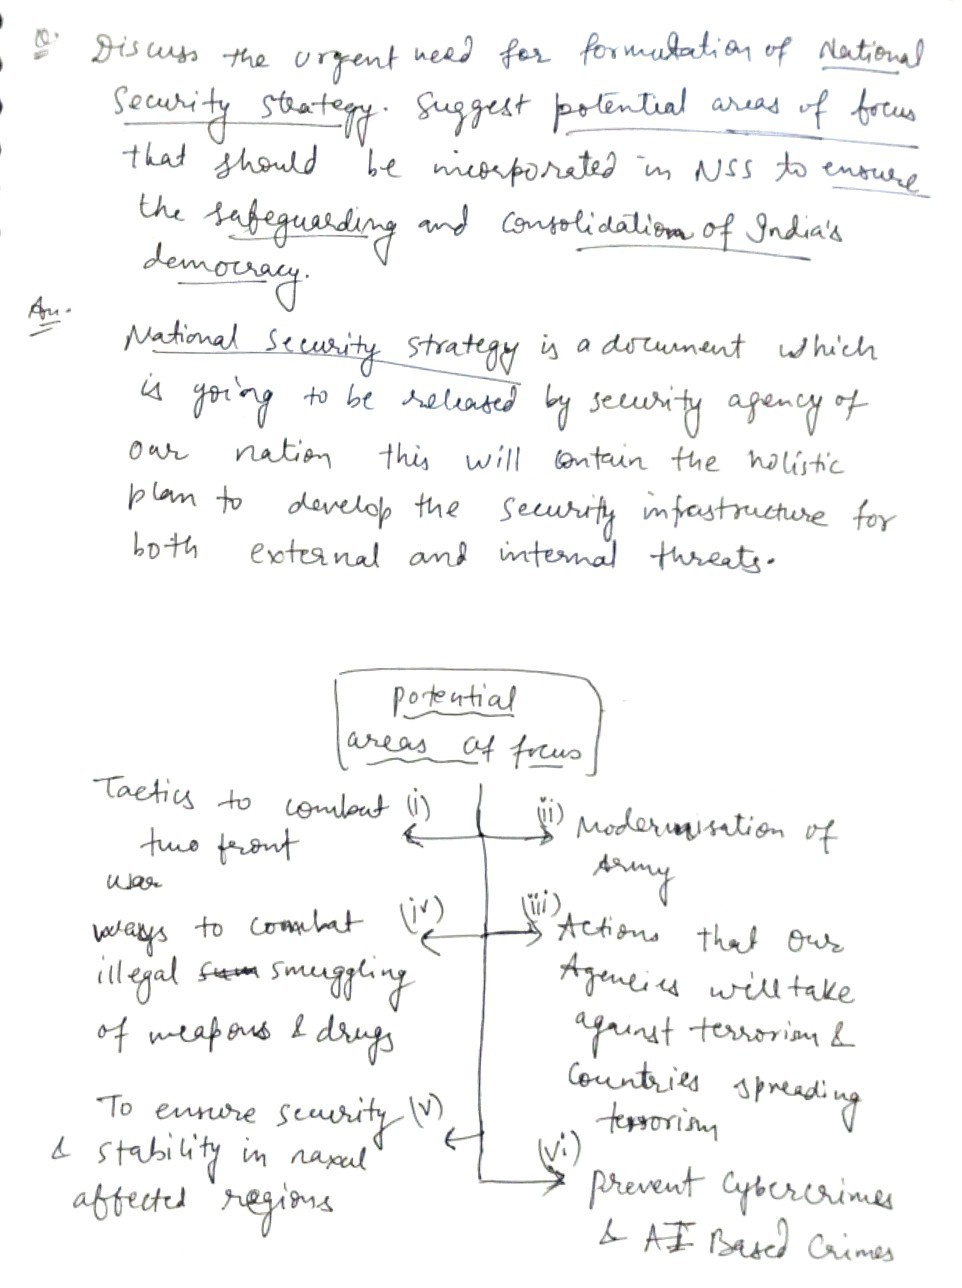 Q. Discuss the urgent need for formulation of National
Security strategy. Suggest potential areas of focus
that should be incorporated in NSS to ensure
the safeguarding and consolidation of India's
democracy.
An.
National Security strategy is a document which
is going to be released by security agency of
our nation this will contain the holistic
plan to develop the security infrastructure for
both external and internal threats.
Potential
areas of focus
(i) Tactics to combat
two front
war
(ii) Modernisation of
Army
(iii) Actions that our
Agencies will take
against terrorism &
Countries spreading
terrorism
(iv) ways to combat
illegal smuggling
of weapons & drugs
(v) To ensure security
& stability in naxal
affected regions
(vi) prevent Cybercrimes
& AI Based Crimes